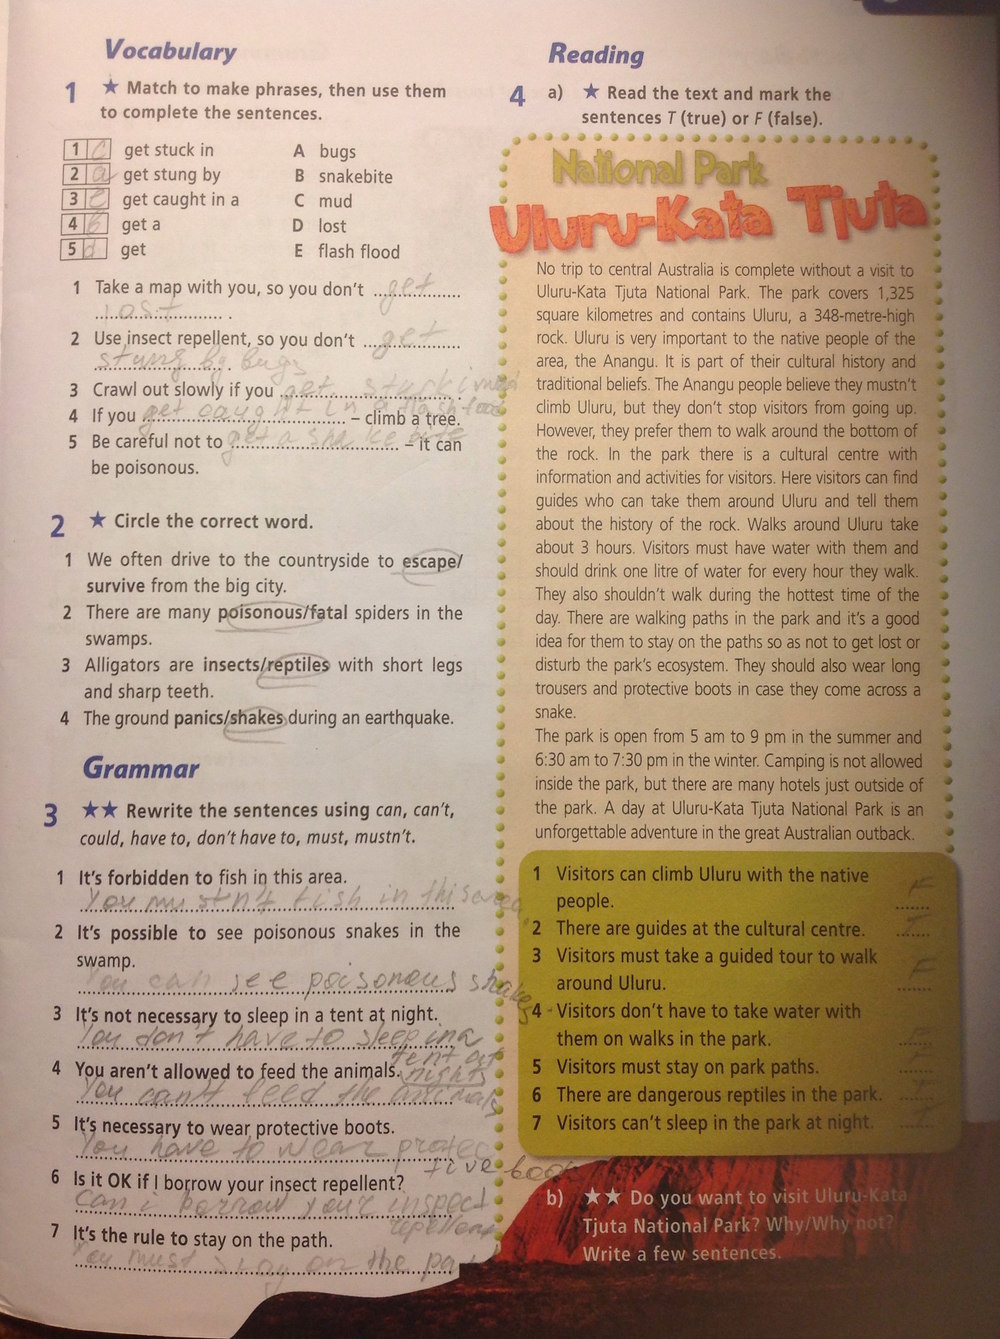 Vocabulary
1 ★ Match to make phrases, then use them
to complete the sentences.
1 C get stuck in A bugs
2 a get stung by B snakebite
3 e get caught in a C mud
4 b get a D lost
5 d get E flash flood
1 Take a map with you, so you don't get
lost .
2 Use insect repellent, so you don't get
stung by bugs .
3 Crawl out slowly if you get stuck in mud .
4 If you get caught in a flash flood – climb a tree.
5 Be careful not to get a snake bite – it can
be poisonous.
2 ★ Circle the correct word.
1 We often drive to the countryside to escape/
survive from the big city.
2 There are many poisonous/fatal spiders in the
swamps.
3 Alligators are insects/reptiles with short legs
and sharp teeth.
4 The ground panics/shakes during an earthquake.
Grammar
3 ★★ Rewrite the sentences using can, can't,
could, have to, don't have to, must, mustn't.
1 It's forbidden to fish in this area.
You mustn't fish in this area.
2 It's possible to see poisonous snakes in the
swamp.
You can see poisonous snakes
3 It's not necessary to sleep in a tent at night.
You don't have to sleep in a
tent at
nights
4 You aren't allowed to feed the animals.
You can't feed the animals
5 It's necessary to wear protective boots.
You have to wear protec
tive boots
6 Is it OK if I borrow your insect repellent?
Can i borrow your inspect
repellent
7 It's the rule to stay on the path.
You must stay on the pa
Reading
4 a) ★ Read the text and mark the
sentences T (true) or F (false).
National Park
Uluru-Kata Tjuta
No trip to central Australia is complete without a visit to
Uluru-Kata Tjuta National Park. The park covers 1,325
square kilometres and contains Uluru, a 348-metre-high
rock. Uluru is very important to the native people of the
area, the Anangu. It is part of their cultural history and
traditional beliefs. The Anangu people believe they mustn't
climb Uluru, but they don't stop visitors from going up.
However, they prefer them to walk around the bottom of
the rock. In the park there is a cultural centre with
information and activities for visitors. Here visitors can find
guides who can take them around Uluru and tell them
about the history of the rock. Walks around Uluru take
about 3 hours. Visitors must have water with them and
should drink one litre of water for every hour they walk.
They also shouldn't walk during the hottest time of the
day. There are walking paths in the park and it's a good
idea for them to stay on the paths so as not to get lost or
disturb the park's ecosystem. They should also wear long
trousers and protective boots in case they come across a
snake.
The park is open from 5 am to 9 pm in the summer and
6:30 am to 7:30 pm in the winter. Camping is not allowed
inside the park, but there are many hotels just outside of
the park. A day at Uluru-Kata Tjuta National Park is an
unforgettable adventure in the great Australian outback.
1 Visitors can climb Uluru with the native
people. F
2 There are guides at the cultural centre. T
3 Visitors must take a guided tour to walk
around Uluru. F
4 Visitors don't have to take water with
them on walks in the park.
5 Visitors must stay on park paths.
6 There are dangerous reptiles in the park.
7 Visitors can't sleep in the park at night. T
b) ★★ Do you want to visit Uluru-Kata
Tjuta National Park? Why/Why not?
Write a few sentences.